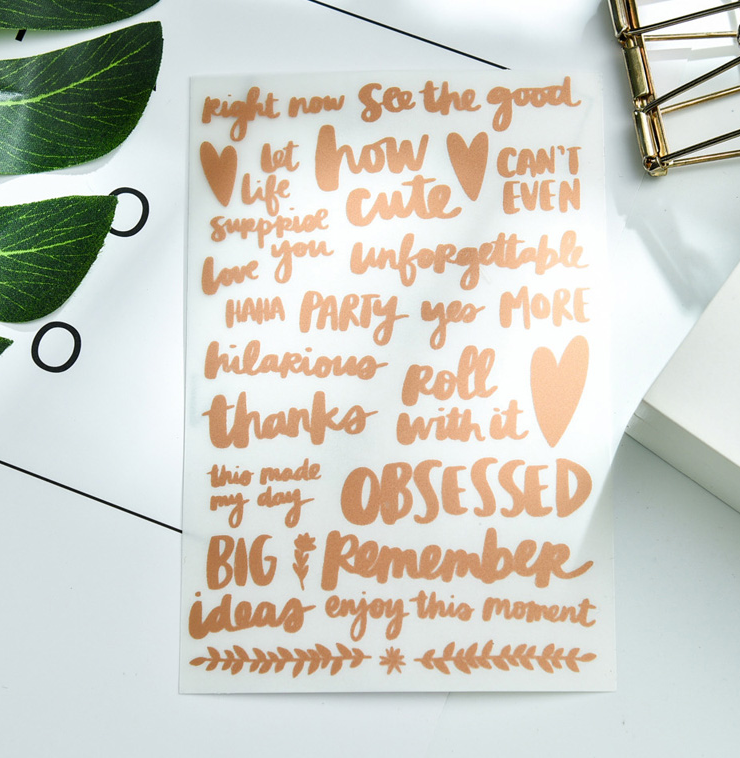 right now see the good
let life surprise you
how cute
CAN'T EVEN
love you
unforgettable
HAHA PARTY yes MORE
hilarious
roll with it
thanks
this made my day
OBSESSED
BIG ideas
Remember
enjoy this moment